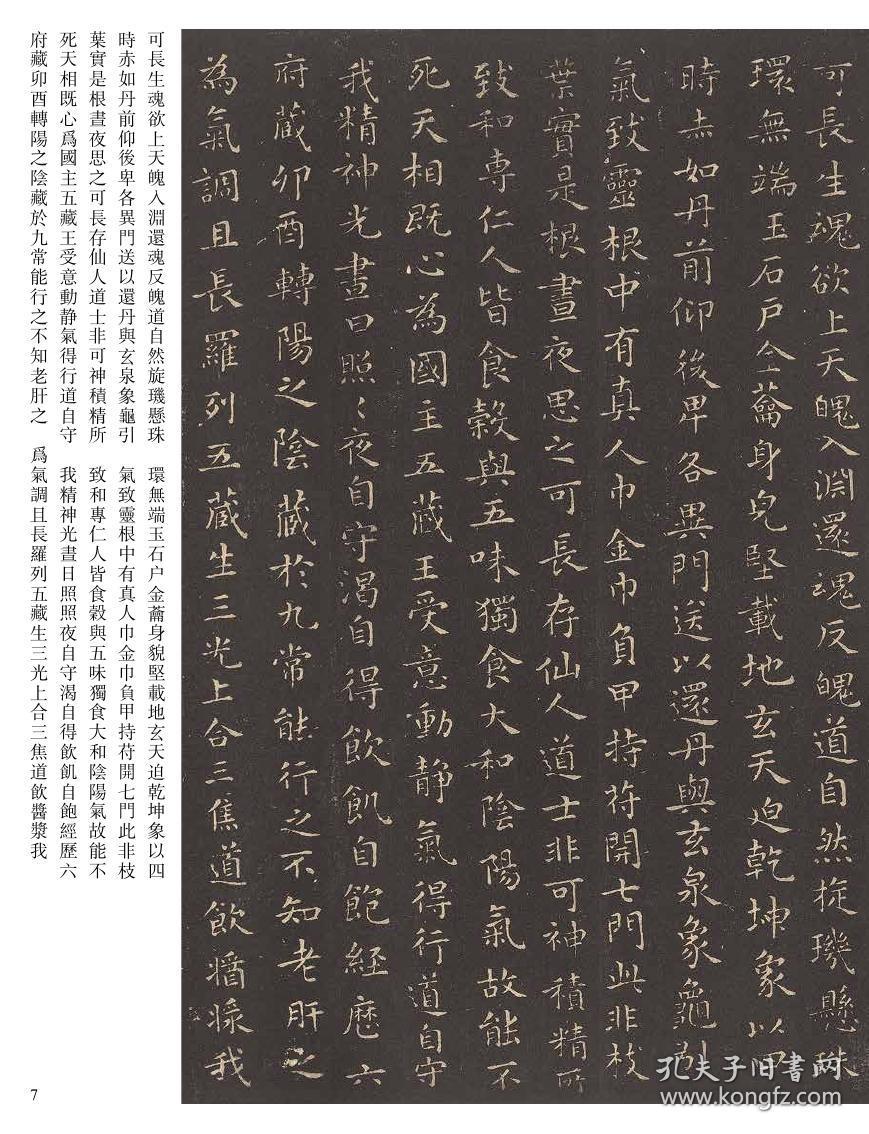 可長生魂欲上天魄入淵還魂反魄道自然旋璣懸珠
環無端玉石户金蘥身皃堅載地玄天迫乾坤象以四
時赤如丹前仰後卑各異門送以還丹與玄泉象龜引
氣致靈根中有真人巾金巾負甲持苻開七門此非枝
葉實是根晝夜思之可長存仙人道士非可神積精所
致和專仁人皆食穀與五味獨食大和陰陽氣故能不
死天相既心為國主五藏王受意動静氣得行道自守
我精神光晝日照〻夜自守渴自得飲飢自飽經歷六
府藏卯酉轉陽之陰藏於九常能行之不知老肝之
為氣調且長羅列五藏生三光上合三焦道飲醬漿我
可長生魂欲上天魄入淵還魂反魄道自然旋璣懸珠　環無端玉石户金蘥身貌堅載地玄天迫乾坤象以四
時赤如丹前仰後卑各異門送以還丹與玄泉象龜引　氣致靈根中有真人巾金巾負甲持苻開七門此非枝
葉實是根晝夜思之可長存仙人道士非可神積精所　致和專仁人皆食穀與五味獨食大和陰陽氣故能不
死天相既心爲國主五藏王受意動静氣得行道自守　我精神光晝日照照夜自守渴自得飲飢自飽經歷六
府藏卯酉轉陽之陰藏於九常能行之不知老肝之　爲氣調且長羅列五藏生三光上合三焦道飲醬漿我
7
孔夫子旧书网
www.kongfz.com